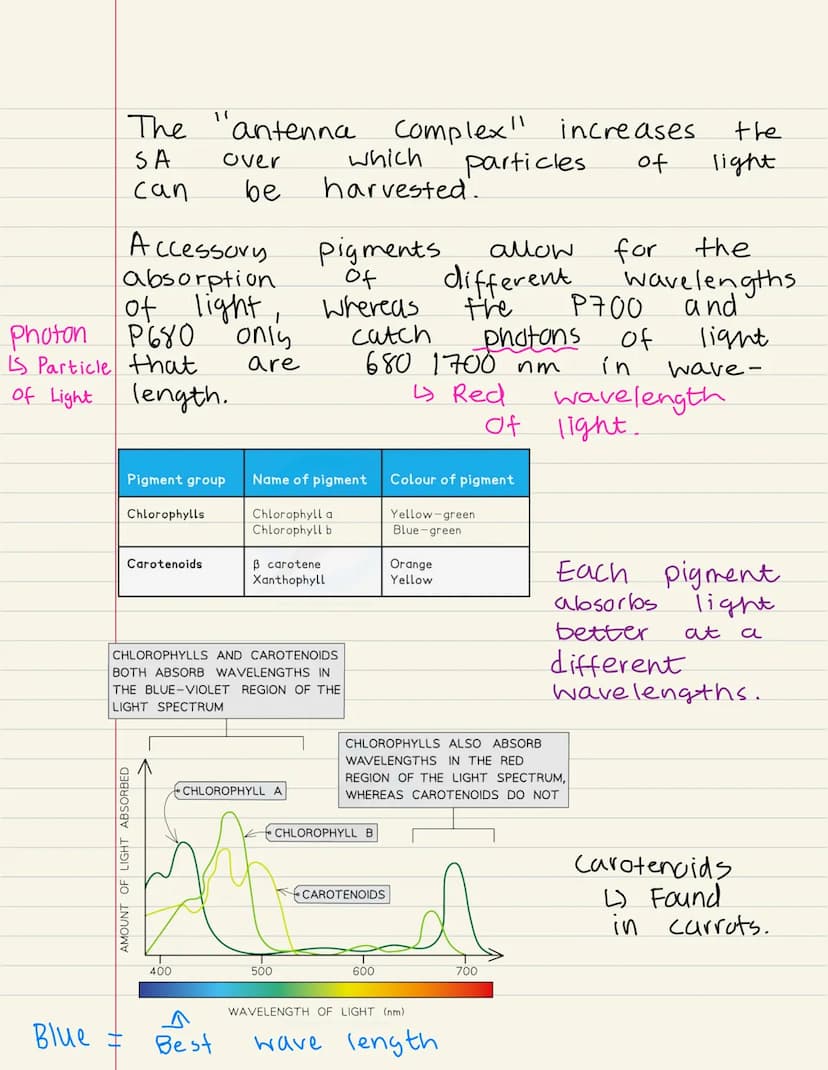 The "antenna complex" increases the
SA over which particles of light
can be harvested.
Accessory pigments allow for the
absorption of different wavelengths
of light, whereas the P700 and
P680 only catch photons of light
that are 680 1700 nm in wave-
length.
Photon
↳ Particle
of Light
↳ Red wavelength
of light.
Pigment group Name of pigment Colour of pigment
Chlorophylls Chlorophyll a Yellow-green
Chlorophyll b Blue-green
Carotenoids β carotene Orange
Xanthophyll Yellow
Each pigment
absorbs light
better at a
different
wavelengths.
CHLOROPHYLLS AND CAROTENOIDS
BOTH ABSORB WAVELENGTHS IN
THE BLUE-VIOLET REGION OF THE
LIGHT SPECTRUM
CHLOROPHYLLS ALSO ABSORB
WAVELENGTHS IN THE RED
REGION OF THE LIGHT SPECTRUM,
WHEREAS CAROTENOIDS DO NOT
AMOUNT OF LIGHT ABSORBED
CHLOROPHYLL A
CHLOROPHYLL B
CAROTENOIDS
400 500 600 700
WAVELENGTH OF LIGHT (nm)
Carotenoids
↳ Found
in carrots.
Blue = Best wave length